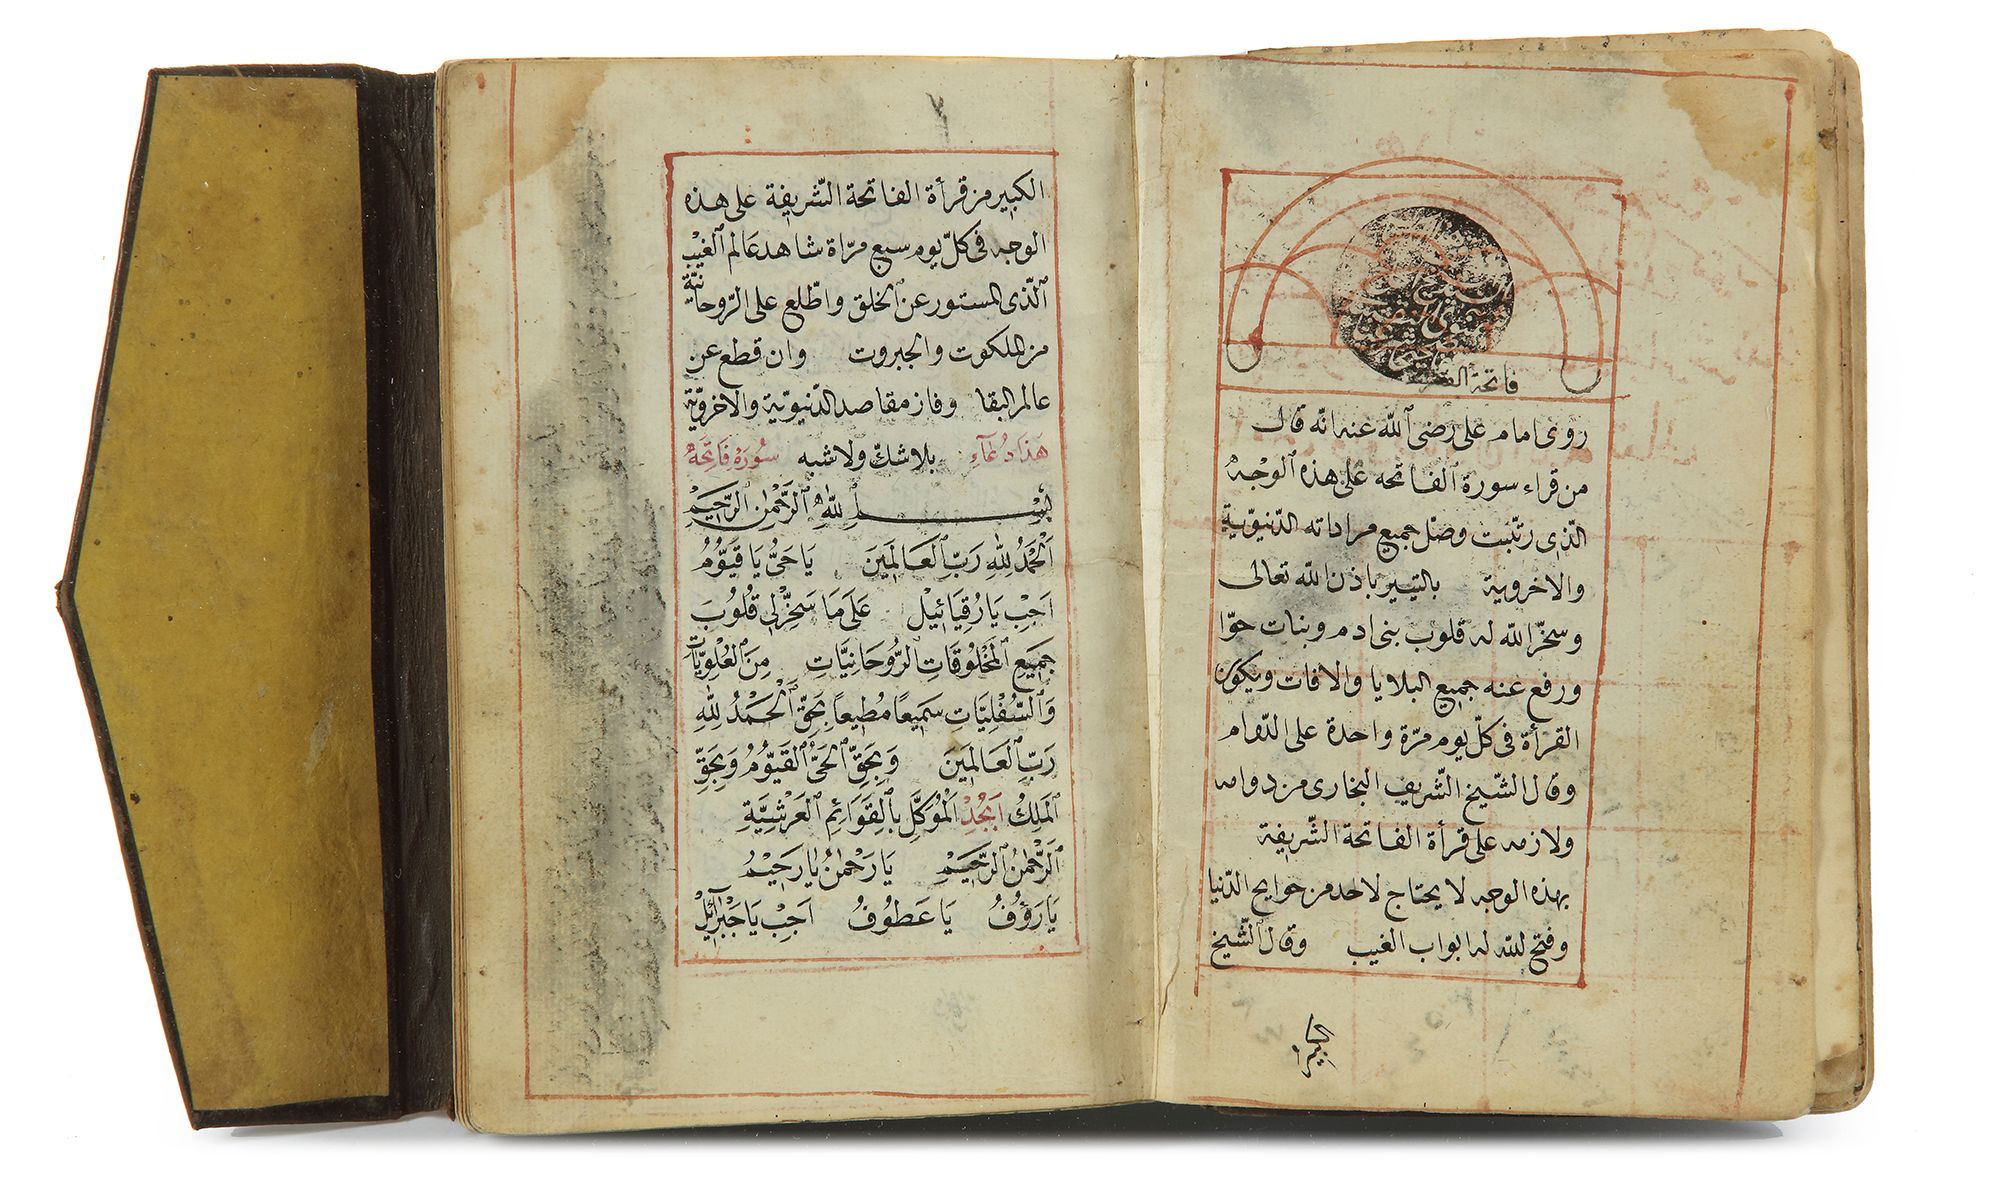 فاتحة
روى امام على رضى الله عنه انه قال
من قراء سورة الفاتحه على هذه الوجه
الذى رتبت وصل جميع مراداته الدّنيويّة
والاخروية بالتيسير باذن الله تعالى
وسخر الله له قلوب بنى ادم وبنات حوّا
ورفع عنه جميع البلايا والافات ويكون
القرأة فى كلّ يوم مرّة واحدة على الدّوام
وقال الشّيخ الشّريف البخارى من دوامه
ولازمه على قرأة الفاتحة الشّريفة
بهذه الوجه لا يحتاج لاحد من حوايج الدّنيا
وفتح لله له ابواب الغيب وقال الشّيخ
الكبير
الكبير من قرأة الفاتحة الشّريفة على هذه
الوجه فى كلّ يوم سبع مرّاة شاهد عالم الغيب
الّذى المستور عن الخلق واطّلع على الرّوحانيّة
من الملكوت والجبروت وان قطع عن
عالم البقا وفاز مقاصد الدّنيويّة والاخرويّة
بلا شكّ ولا شبه هَذَا دُعَاءِ سُورَة فَاتِحَة
بِسْمِ اللهِ الرَّحْمٰنِ الرَّحِيمِ
اَلْحَمْدُ لِلّٰهِ رَبِّ الْعَالَمِينَ يَا حَيُّ يَا قَيُّومُ
اَجِبْ يَا رُقْيَائِيْلُ عَلَى مَا سَخِّرْ لِى قُلُوبَ
جَمِيعِ الْمَخْلُوقَاتِ الرُّوحَانِيَّاتِ مِنَ الْعُلْوِيَّاتِ
وَالسُّفْلِيَّاتِ سَمِيعاً مُطِيعاً بِحَقِّ الْحَمْدُ لِلّٰهِ
رَبِّ الْعَالَمِينَ وَبِحَقِّ الْحَىُّ الْقَيُّومُ وَبِحَقِّ
الْمَلِكُ اَبْجُدْ الْمُوَكَّلِ بِالْقَوَائِمِ الْعَرْشِيَّةِ
اَلرَّحْمٰنِ الرَّحِيْمِ يَا رَحْمٰنُ يَا رَحِيْمُ
يَا رَؤُفُ يَا عَطُوفُ اَجِبْ يَا جَبْرَائِلُ